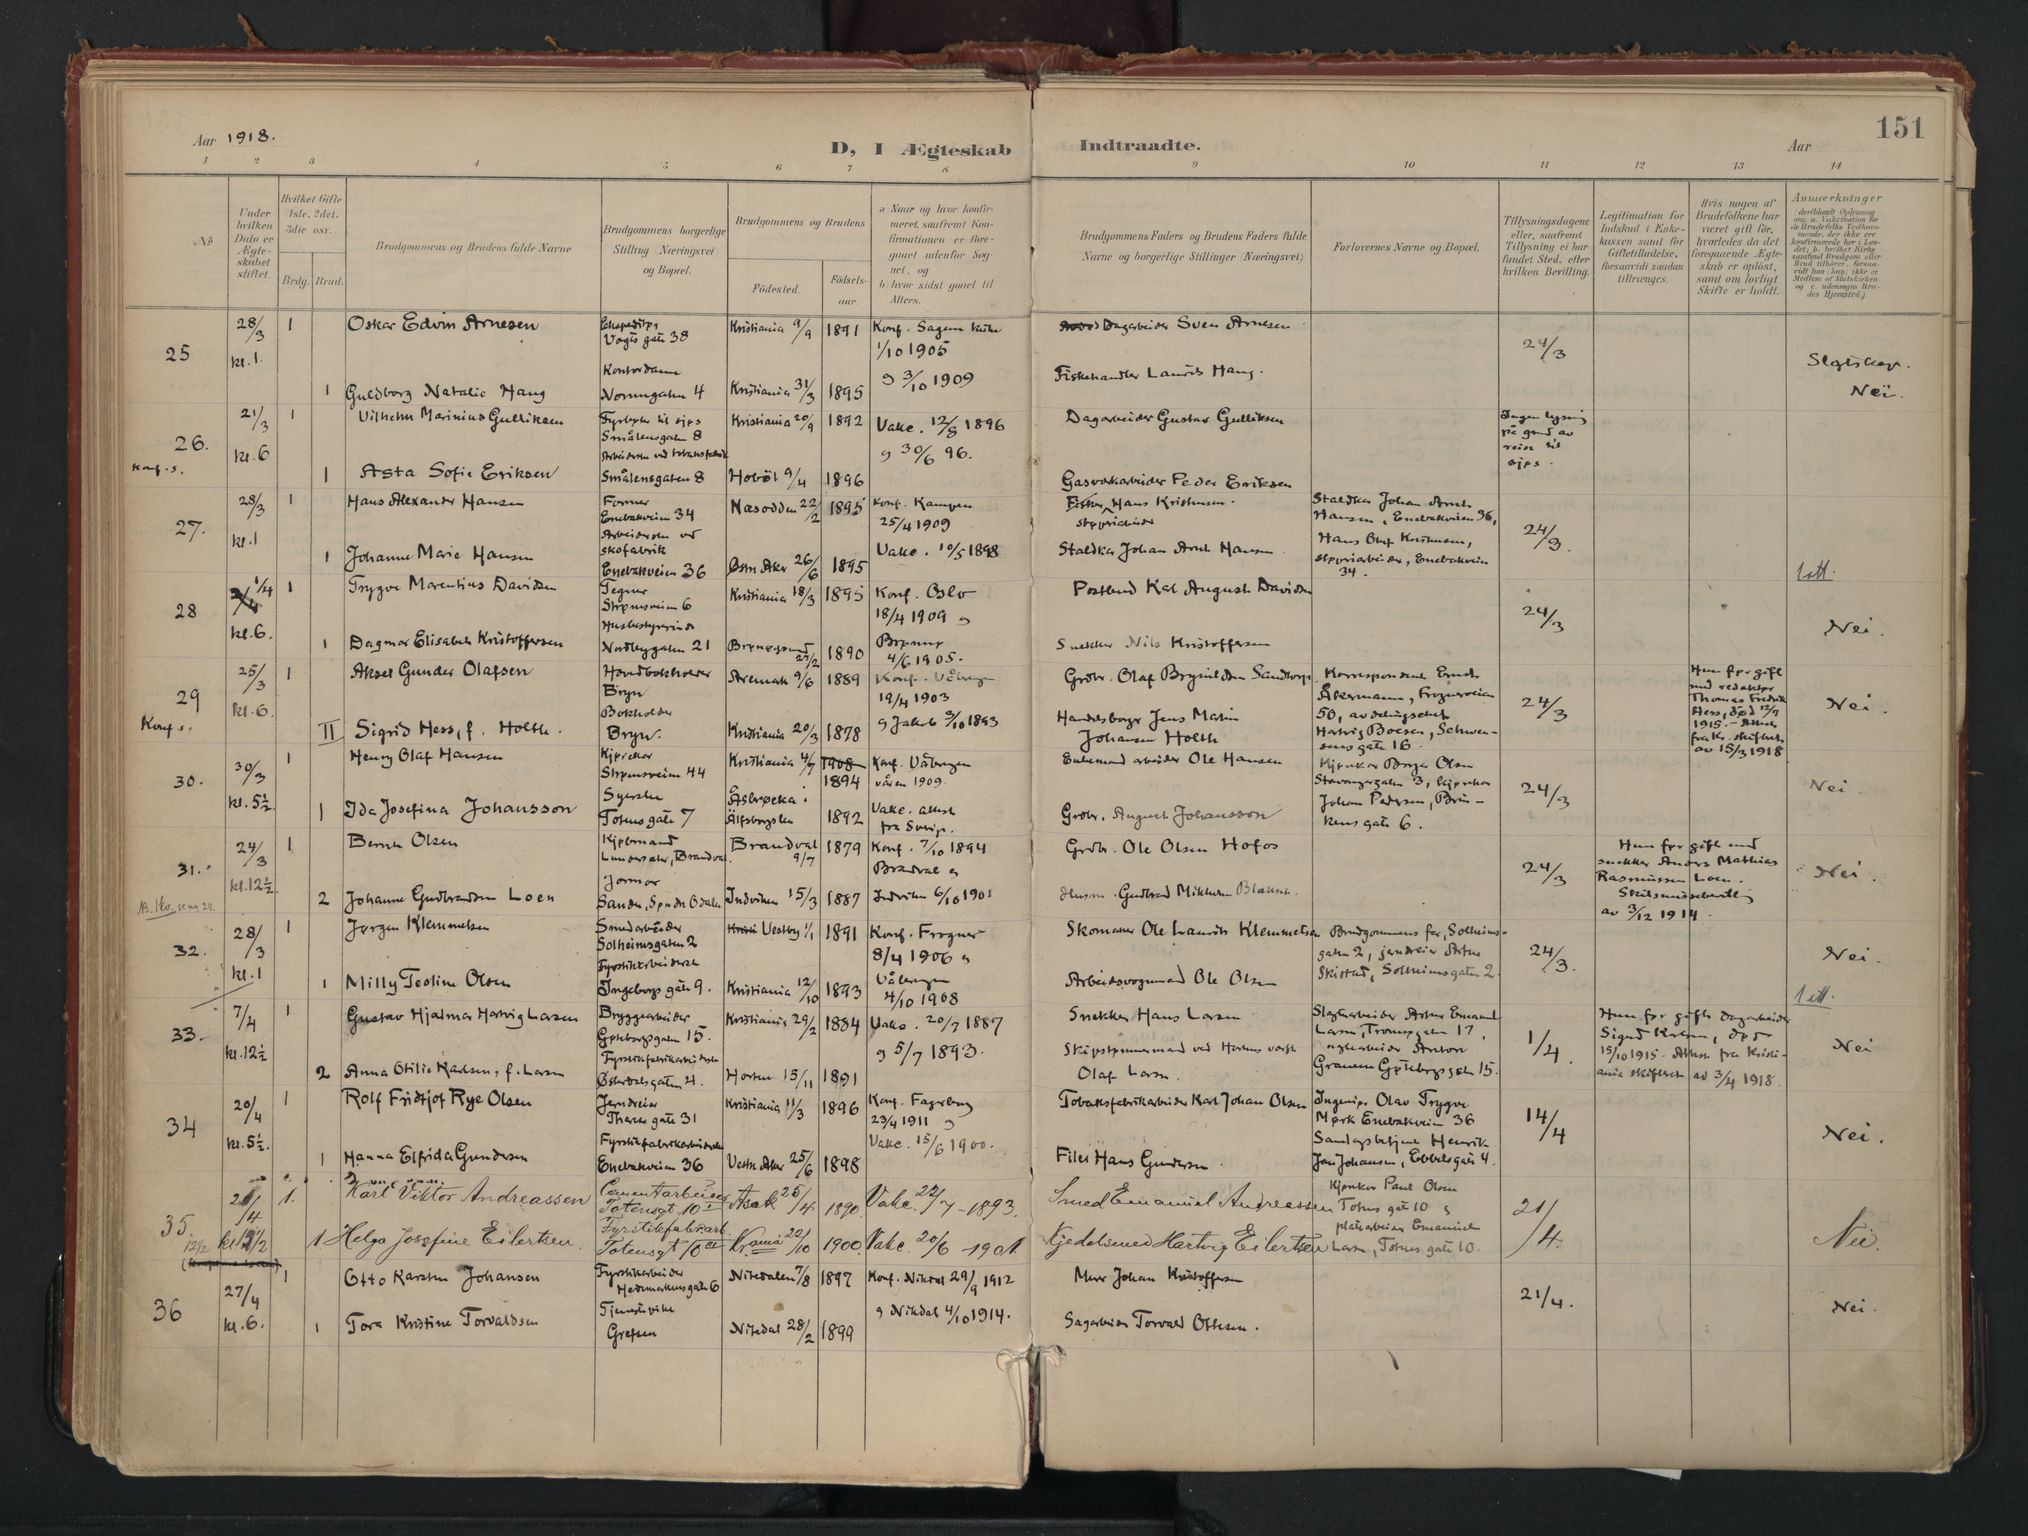 Aar 1918.
D, I Ægteskab
Indtraadte.
Aar
151
1 2 3 4 5 6 7 8 9 10 11 12 13 14
No
Under hvilken Dato er Ægte-skabet stiftet.
Hvilket Gifte 1ste, 2det, 3die osv.
Brdg. Brud.
Brudgommens og Brudens fulde Navne
Brudgommens borgerlige Stilling (Næringsvei) og Bopæl.
Brudgommens og Brudens
Fødested.
Fødsels-aar.
a. Naar og hvor konfir-
meret, saafremt Kon-
firmationen er fore-
gaaet udenfor Sog-
net, og
b. hvor sidst gaaet til
Alters.
Brudgommens Faders og Brudens Faders fulde
Navne og borgerlige Stillinger (Næringsvei)
Forlovernes Navne og Bopæl.
Tillysningsdagene
eller, saafremt
Tillysning ei har
fundet Sted, efter
hvilken Bevilling.
Legitimation for
Indskud i Enke-
kassen samt for
Giftetilladelse,
forsaavidt saadan
tiltrænges.
Hvis nogen af
Brudefolkene har
været gift før,
hvorledes da det
foregaaende Ægte-
skab er opløst,
samt om lovligt
Skifte er holdt.
Anmærkninger
25
28/3
kl. 1.
1
Oskar Edvin Arnesen
Vogts gate 38
Kristiania 9/9
1891
Konf. Sagene kirke
1/10 1905
Dagarbeider Sven Arnesen
24/3
1
Guldborg Natalie Haug
Kontordame
Normngaten 4
Kristiania 31/3
1895
3/10 1909
Fiskehandler Laurits Haug.
Nei.
26.
Konf. s.
21/3
kl. 6
1
Vilhelm Marinius Gulliksen
Fyrbøter til sjøs
Smålensgaten 8
Kristiania 20/9
1892
Vake. 12/8 1896
Dagarbeider Gustav Gulliksen
Ingen lysning
på grund av
reise til
sjøs.
1
Asta Sofie Eriksen
Smålensgaten 8
Hobøl 9/4
1896
30/6 96.
Gasverkarbeider Peder Eriksen
27.
28/3
kl. 1
1
Hans Alexander Hansen
Former
Enebakveien 34
Næsodden 22/2
1895
Konf. Kampen
25/4 1909
Hans Kristiansen.
Hansen, Enebakveien 36,
24/3.
1
Johanne Marie Hansen
Arbeiderske ved
skofabrik
Enebakveien 36
Østre Aker 26/6
1895
Vake. 10/5 1898
Staldkar Johan Arnt Hansen
støperiarbeider, Enebakveien
34.
28
1/4
kl. 6.
1
Trygve Marentius Davidsen
Tegner
Strømsveien 6
Kristiania 18/3
1895
Konf. Oslo
18/4 1909
Postbud Karl August Davidsen
24/3
1 att.
1
Dagmar Elisabeth Kristoffersen
Husbestyrerinde
Nordbygaten 21
Brønøysund 27/2
1890
Brønnø
4/6 1905.
Snekker Nils Kristoffersen
Nei.
29
Konf s.
25/3
kl. 6.
1
Aksel Gunder Olafsen
Hovedbokholder
Bryn
Aremark 9/6
1889
Konf. Vålereng
19/4 1903
Korrespondent Ernst
Åkermann, Frognerveien
50, avdelingschef
Hartvig Boesen, Schwen-
sens gate 16.
24/3
Hun før gift
med redaktør
Thomas Fredrik
Hess, død 12/9
1915. - Attest
fra Kr. skifteret
av 15/3 1918
Nei.
II
Sigrid Hess, f. Holth.
Bokholder
Bryn.
Kristiania 20/3
1878
Jakob 3/10 1893
Handelsborger Jens Martin
Johansen Holth
30.
30/3
kl. 5½.
1
Henry Olaf Hansen
Kjørekar
Strømsveien 44
Kristiania 4/7
1908
1894
Konf. Vålereng
våren 1909.
Enkemand arbeider Ole Hansen
Kjørekar Birger Olsen
Stavangergaten 3, kjørekar
Johan Pedersen, Brin-
kens gate 6.
24/3
Nei
1
Ida Josefina Johansson
Syerske
Totens gate 7
Älfsborgs län
1892
Vake. attest
fra Sverige.
Grdbr. August Johansson
31.
24/3
kl. 12½.
1
Bernt Olsen
Kjøbmand
Lundersæter, Brandval.
Brandval 9/7
1879
Konf. 7/10 1894
Brandval
Grdbr. Ole Olsen Hofos
24/3
Hun før gift med
snekker Anders Mathias
Rasmussen Loen.
Skilsmissebevilling
av 3/12 1914.
Nei.
2
Johanne Gudbrandsen Loen
Jormor
Sander, Søndre Odalen
Indviken 15/3
1887
Indviken 6/10 1901
32.
28/3
kl. 1
1
Jørgen Klemmetsen
Smedarbeider
Solheimsgaten 2
Vestby 1/1
1891
Konf. Frogner
8/4 1906
Skomaker Ole Laurits Klemmetsen
Brudgommens far, Solheims-
gaten 2, jerndreier Artur
Skistad, Solheimsgaten 2.
24/3.
Nei.
1
Milly Teoline Olsen
Fyrstikarbeiderske
Ingeborgs gate 9.
Kristiania 12/10
1893
Vålereng
4/10 1908
Arbeidsvognmand Ole Olsen
33.
7/4
kl. 12½
1
Gustav Hjalmar Hartvig Larsen
Bryggearbeider
Gøteborggaten 15.
Kristiania 29/2
1884
Vake. 20/7 1887
Snekker Hans Larsen
Larsen, Tromsøgaten 17,
Anton
Gøteborggaten 15.
1/4.
1 att.
Hun før gift dagarbeider
Sigurd Karlsen, død
15/10 1915. Attest fra Kristi-
ania skifteret av 3/4 1918.
Nei
2
Anna Otilie Karlsen, f. Larsen
Fyrstikfabrikarbeiderske
Østerdalsgaten 4.
Horten 15/11
1891
5/7 1893.
Skipstømmermand ved Hortens verft
Olaf Larsen.
34
20/4
kl. 5½.
1
Rolf Fridtjof Rye Olsen
Jerndreier
gate 31
Kristiania 11/3
1896
Konf. Fagerborg
23/4 1911
Tobaksfabrikarbeider Karl Johan Olsen
Ingeniør Olav Trygve
Mørk Enebakveien 36
Henrik
Johansen, Ebbelsgate 4.
14/4
Nei.
1
Hanna Elfrida Gundersen
Fyrstikfabrikarbeiderske
Enebakveien 36
Vestre Aker 25/6
1898
Vake. 15/6 1900.
Filer Hans Gundersen.
35.
21/4
kl. 12½
1.
Karl Viktor Andreassen
Cementarbeider
Totensgt. 10
Asak 25/4
1890
Vakc. 22/7 - 1893.
Smed Emanuel Andreassen
Kjørekar Paul Olsen
Totens gate 10
platearbeider Emanuel
Larsen, Totens gate 10.
21/4.
Nei.
1
Helga Josefine Eilertsen.
Fyrstikfabr.arb.
Totensgt 10
Kr.ania 22/10
1900.
Vakc. 20/6 - 1901.
Kjedelsmed Hartvig Eilertsen
36
27/4
kl. 6.
1
Otto Karsten Johansen
Fyrstikarbeider
Hedemarkens gate 6
Nitedalen 7/8
1897
Konf. Nitedal 29/9 1912
Murer Johan Kristoffersen
21/4.
Nei.
1
Tora Kristine Torvaldsen
Tjenestepike
Grefsen
Nitedal 28/2
1899
Nitedal 4/10 1914.
Sagarbeider Torvald Ottesen.